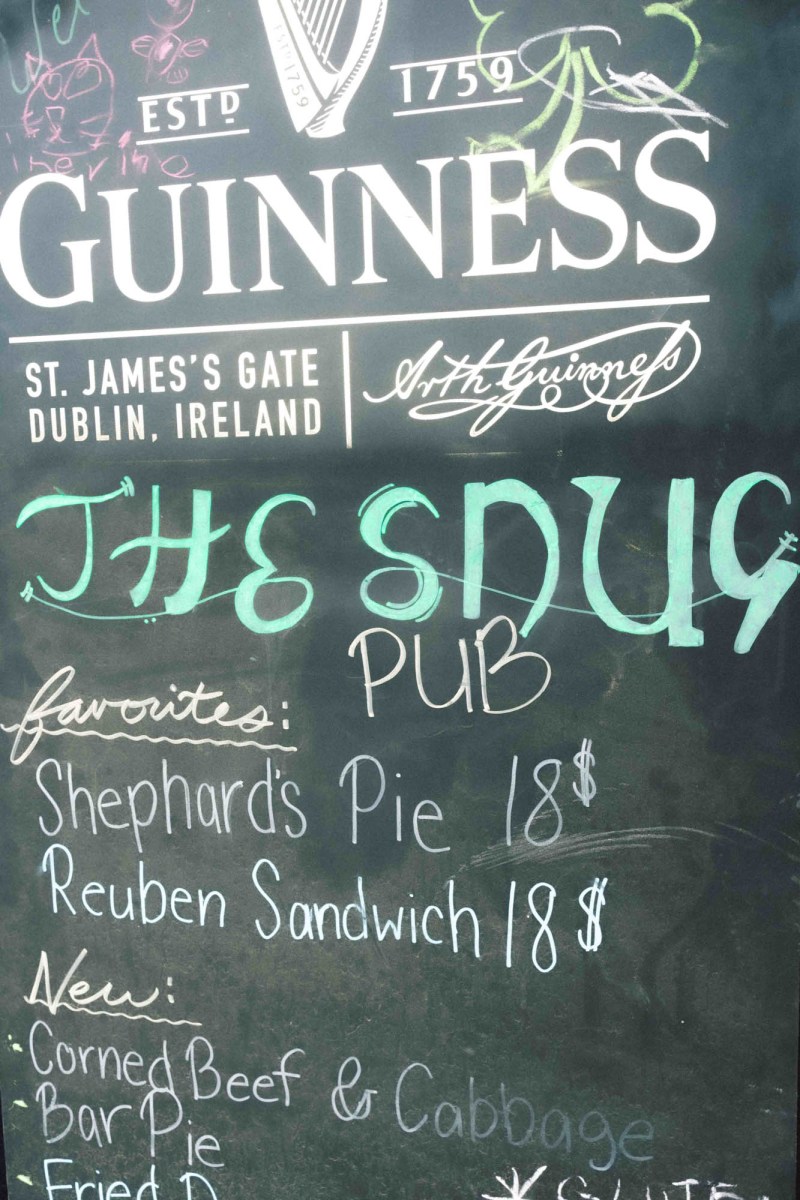 ESTD 1759
ESTD 1759
GUINNESS
ST. JAMES'S GATE
DUBLIN, IRELAND
Arth Guinness
THE SNUG
PUB
favorites:
Shephard's Pie 18$
Reuben Sandwich 18$
New:
Corned Beef & Cabbage
Bar Pie
Fried